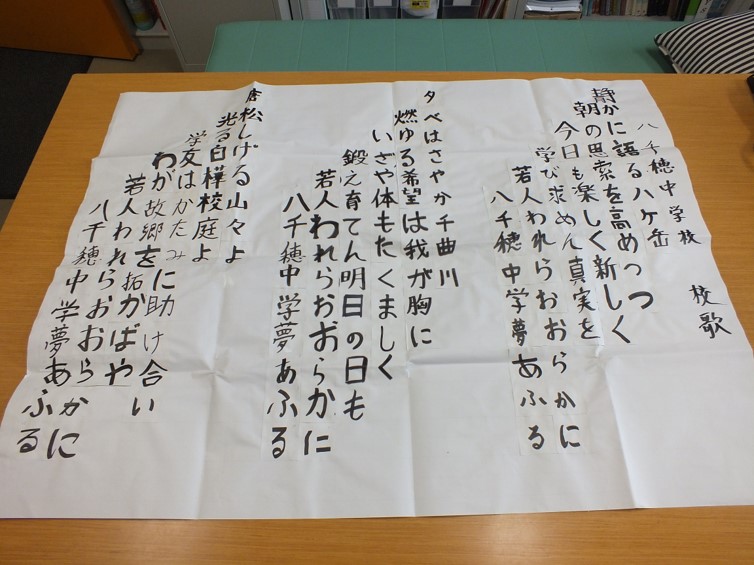 八千穂中学校 校歌
静かに語る八ケ岳
朝の思索を高めつつ
今日も楽しく新しく
学び求めん真実を
若人われらおおらかに
八千穂中学夢あふる
夕べはさやか千曲川
燃ゆる希望は我が胸に
いざや体もたくましく
鍛え育てん明日の日も
若人われらおおらかに
八千穂中学夢あふる
唐松しげる山々よ
光る白樺校庭よ
学友はかたみに助け合い
わが故郷を拓かばや
若人われらおおらかに
八千穂中学夢あふる